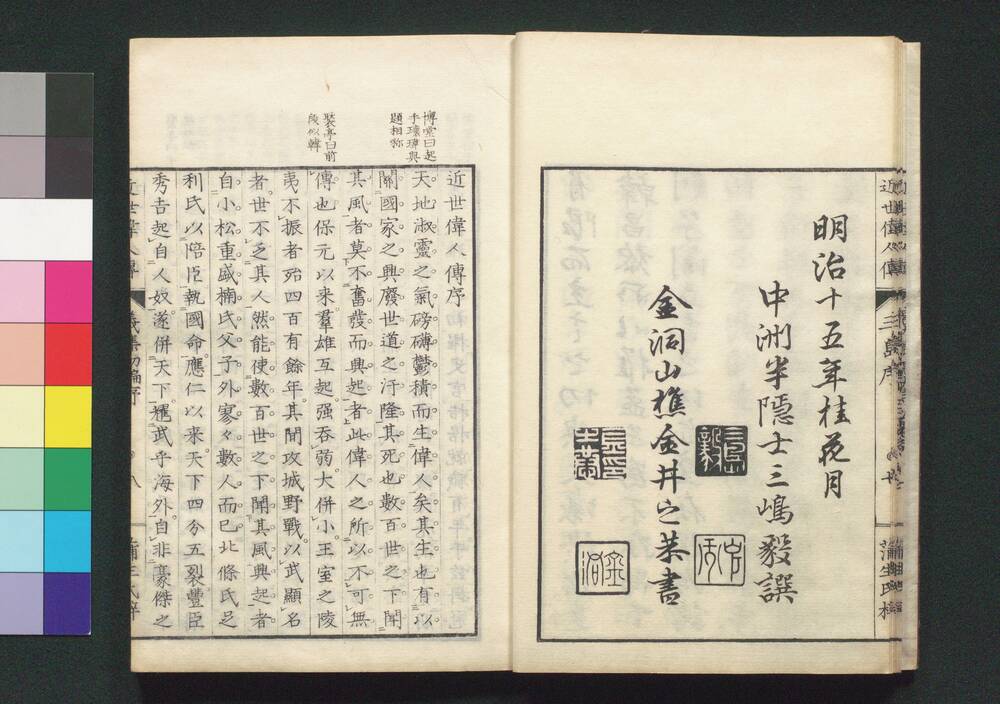 近世偉人傳
三島序
蒲生氏梓
明治十五年桂花月
中洲半隱士三嶋毅譔
金洞山樵金井之恭書
三島
毅
博堂曰起
手瓌瑋與
題相称
裴亭曰前
段似韓
近世偉人傳序
天地淑靈之氣磅礴鬱積而生偉人矣其生也有以
關國家之興廢世道之汙隆其死也數百世之下聞
其風者莫不奮發而興起者此偉人之所以不可無
傳也保元以來羣雄互起强吞弱大併小王室之陵
夷不振者殆四百有餘年其間攻城野戰以武顯名
者世不乏其人然能使數百世之下聞其風興起者
自小松重盛楠氏父子外寥々數人而已北條氏足
利氏以陪臣執國命應仁以來天下四分五裂豐臣
秀吉起自人奴遂併天下耀武乎海外自非豪傑之